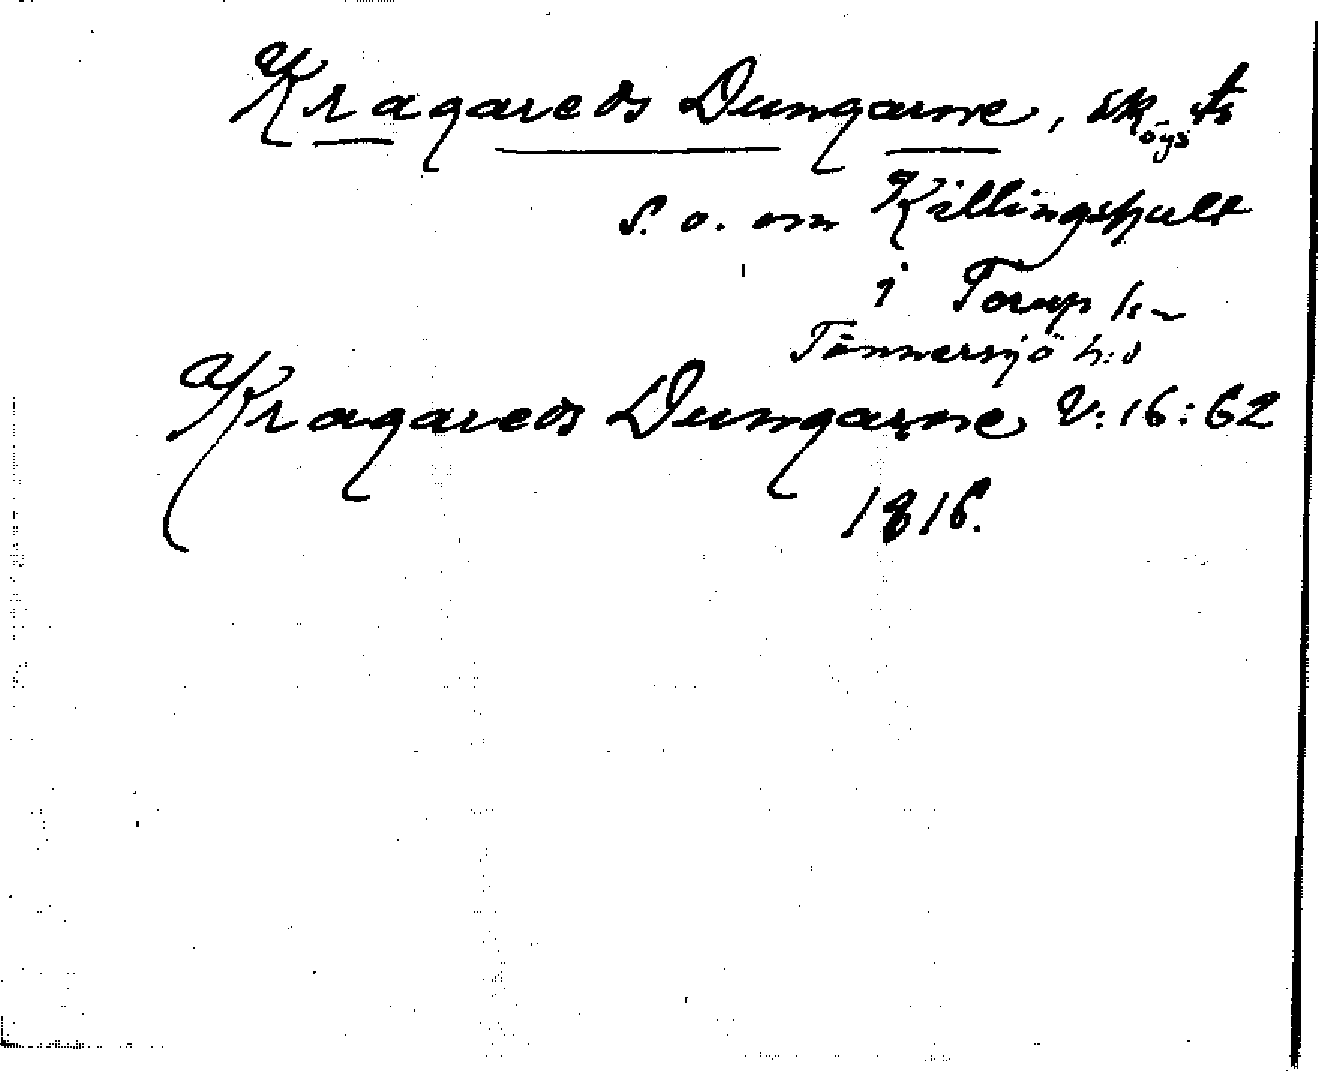 Kragareds Dungarne, sk
S. o. om Killingshult
i Torup sn
Tönnersjö h:d
Kragareds Dungarne V:16:62
1816.